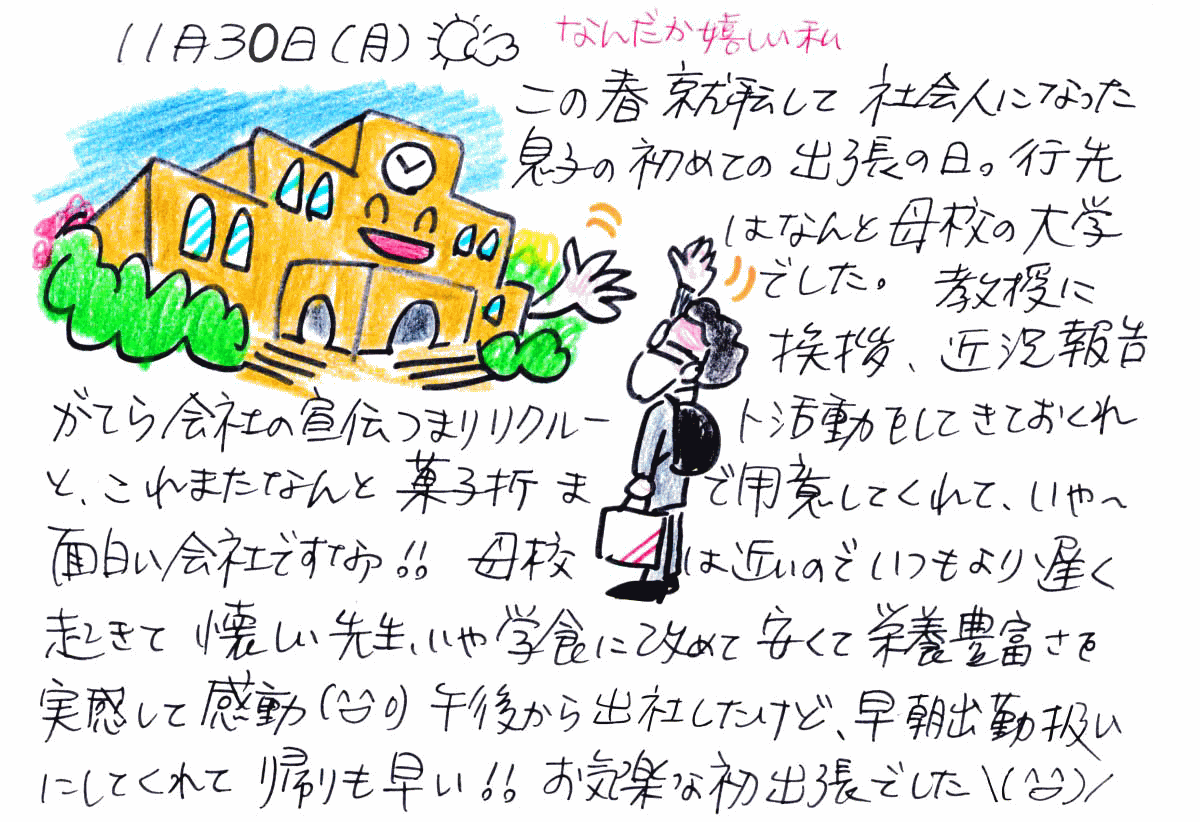 11月30日(月) なんだか嬉しい私
この春就転して社会人になった
息子の初めての出張の日。行先
はなんと母校の大学
でした。教授に
挨拶、近況報告
がてら会社の宣伝つまりリクルート活動をしてきておくれ
と、これまたなんと菓子折まで用意してくれて、いや〜
面白い会社ですなぁ!! 母校は近いのでいつもより遅く
起きて懐しい先生、いや学食に改めて安くて栄養豊富さを
実感して感動(^▽^) 午後から出社したけど、早朝出勤扱い
にしてくれて帰りも早い!! お気楽な初出張でした\(^▽^)/